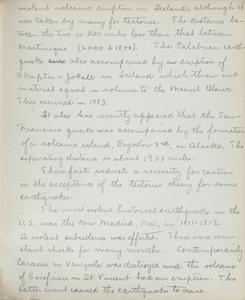 violent volcanic eruption in Iceland, although it
was taken by many for tectonic. The distance be-
tween the two is 200 miles less than that between
Martinique (2000 & 1800). The Calabrian earth-
quake was also accompanied by an eruption of
Skaptar-Jokull in Iceland which threw out
material equal in volume to the Mount Blanc.
This occurred in 1783.
It also has recently appeared that the San-
Francisco quake was accompanied by the formation
of a volcanic island, Bogoslov 3rd, in Alaska. The
separating distance is about 1900 miles.
These facts indicate a necessity for caution
in the acceptance of the tectonic theory for some
earthquakes.
The most violent historical earthquake in the
U.S. was the New Madrid, Mo., in 1811-1812.
A violent subsidence was effected. There were con-
stant shocks for many months. Contemporarily
Caracas in Venezuela was destroyed and the volcano
of Soufriere in St. Vincent had an eruption. The
latter event caused the earthquake to cease.